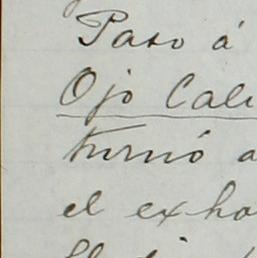 Paso á
Ojo Cali
turnó a
el exho